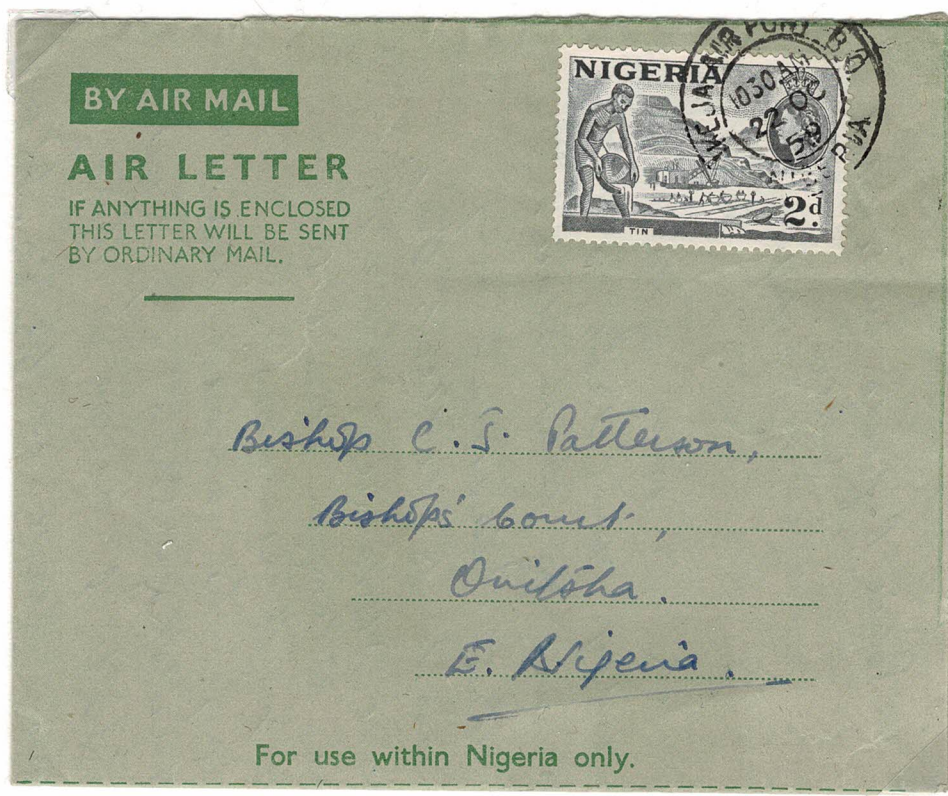 BY AIR MAIL
AIR LETTER
IF ANYTHING IS ENCLOSED
THIS LETTER WILL BE SENT
BY ORDINARY MAIL.
NIGERIA
TIN
2d.
IKEJA AIR PORT B.O.
1030 AM
22 O
58
NIGERIA
Bishop C. J. Patterson,
Bishop's Court,
Onitsha.
E. Nigeria.
For use within Nigeria only.